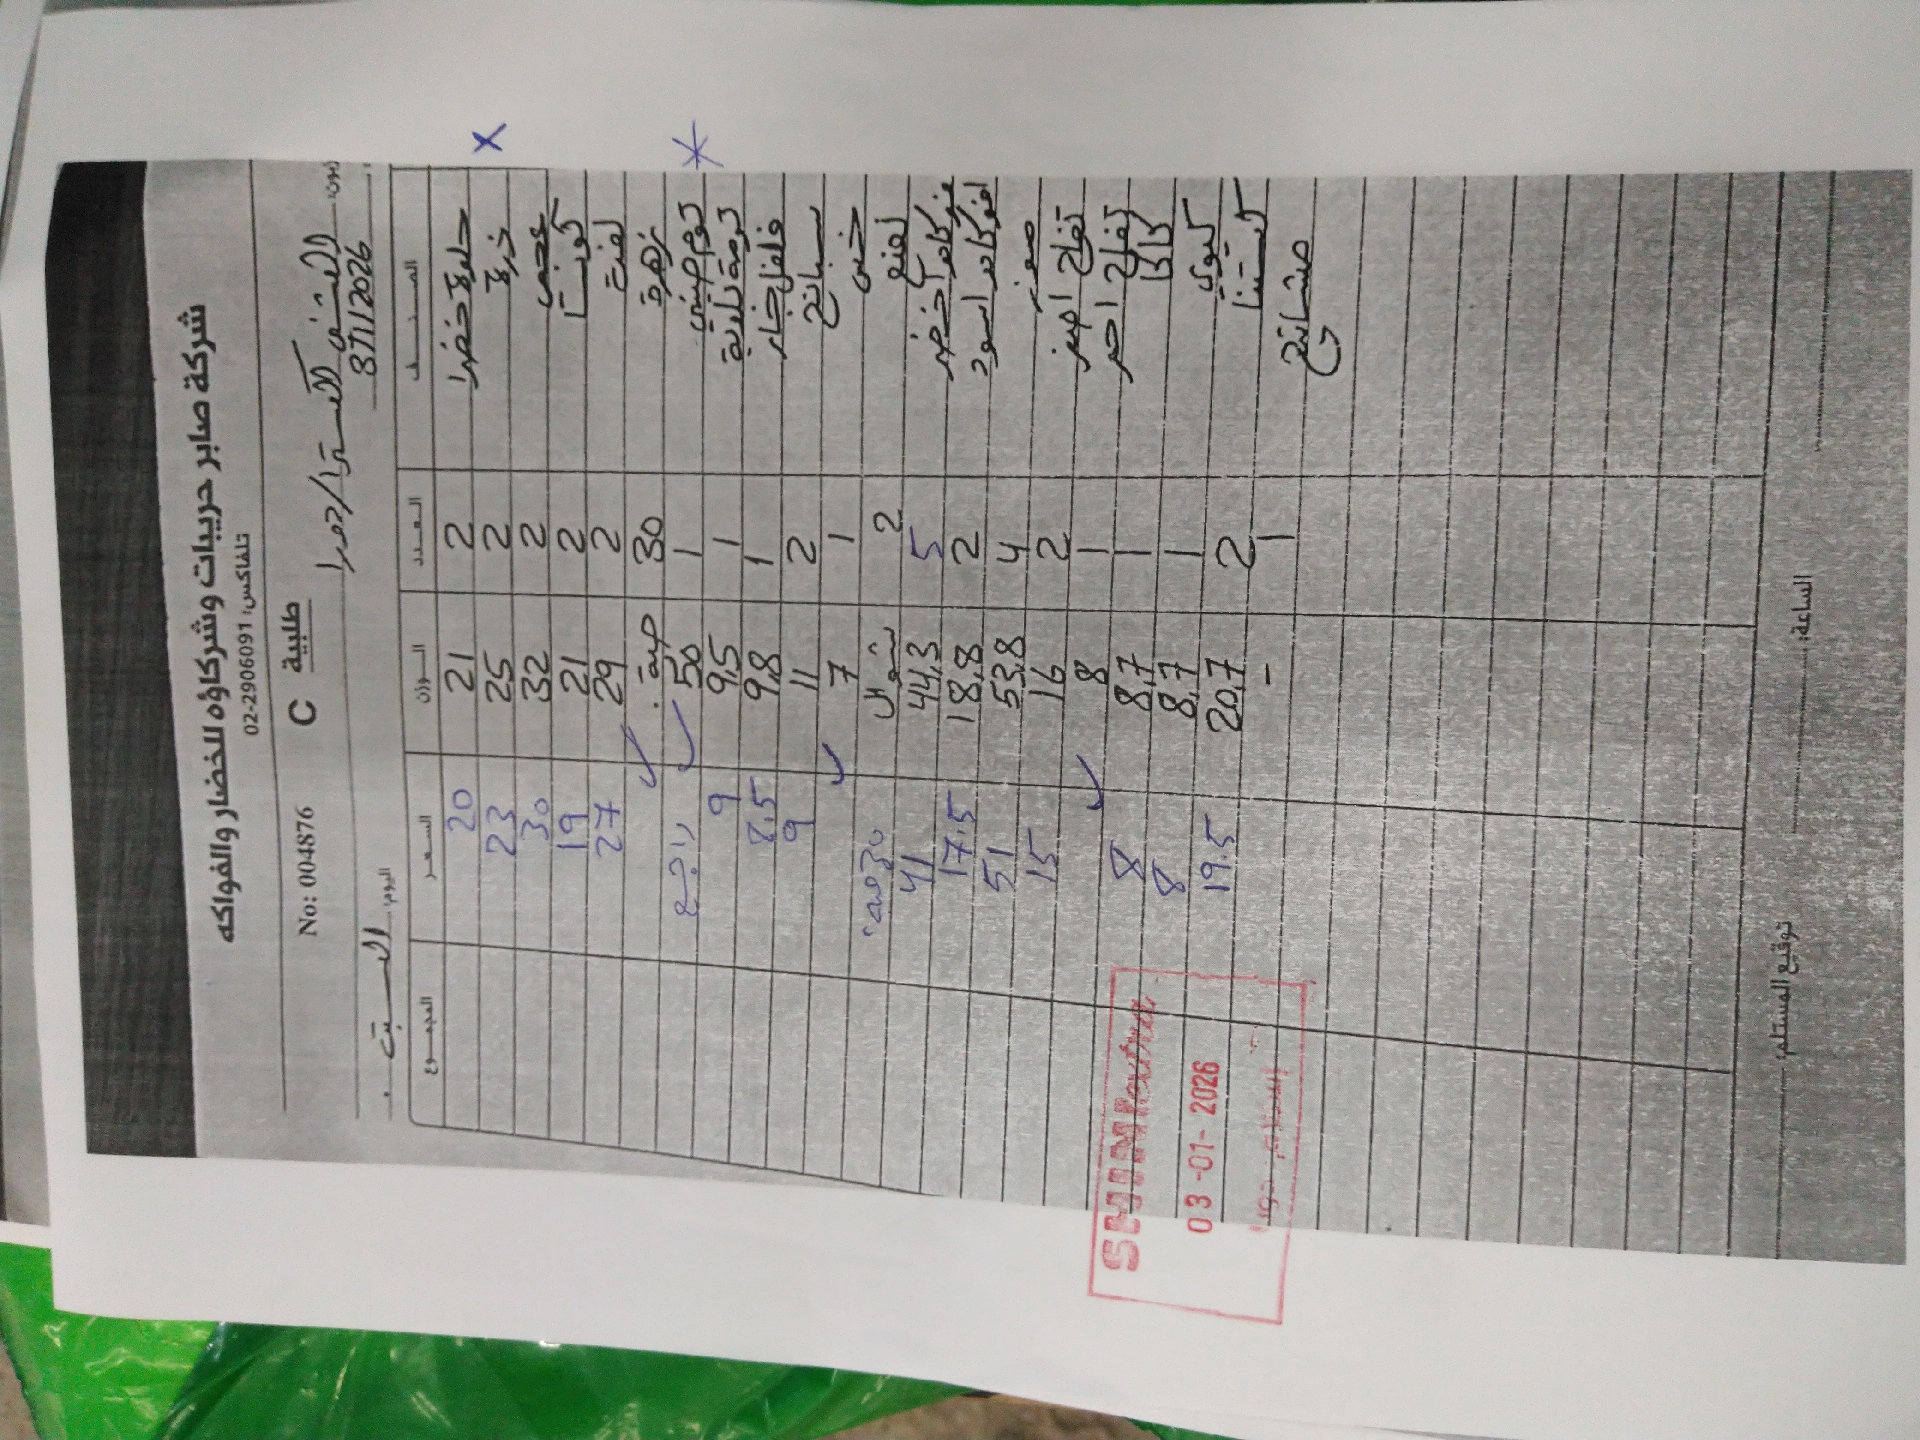 شركة صابر حريبات وشركاؤه للخضار والفواكه
تلفاكس: 02-2906091
No: 004876 C طلبية
الاكسترا / حمرا
اليوم السبت 3/1/2026
الصنف العدد الوزن السعر المجموع
حلوة خضرا 2 21 20
X خزة 2 25 23
عجمي 2 32 30
كوبنت 2 21 19
لفت 2 29 27
زهرة 30 صينة ✓
ثوم صيني 1 50 ✓ راجع
* كرمة بلدية 1 9,5 9
فلفل حار 1 9,8 8.5
سبانخ 2 11 9
خس 1 7 ✓
نعنع 2 شوال
افوكادو اخضر 5 44,3 41
افوكادو اسود 2 18,8 17.5
موز 4 53,8 51
تفاح اصفر 2 16 15
تفاح احمر 1 8 ✓
كاكا 1 8,7 8
كيوي 1 8,7 8
كستنا 2 20,7 19.5
1 -
SHINI extra
03-01-2026
توقيع المستلم: الساعة: